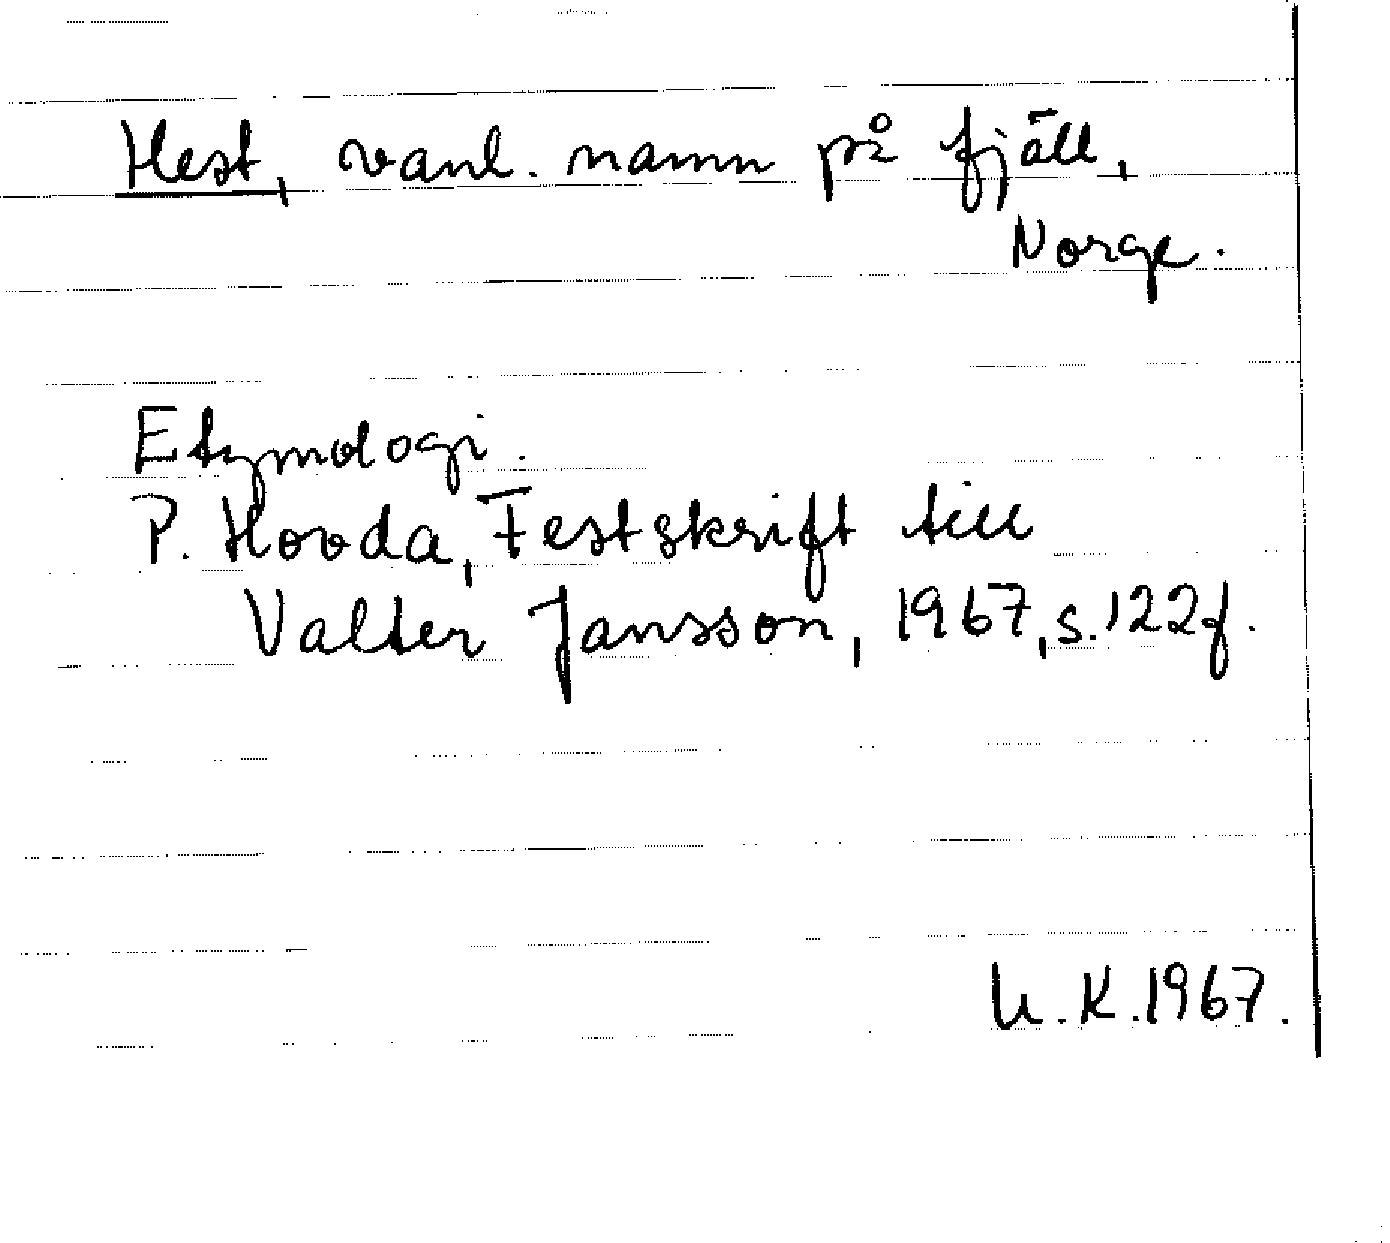 Hest, vanl. namn på fjäll,
Norge.
Etymologi.
P. Hovda, Festskrift till
Valter Jansson, 1967, s. 122 f.
U. K. 1967.